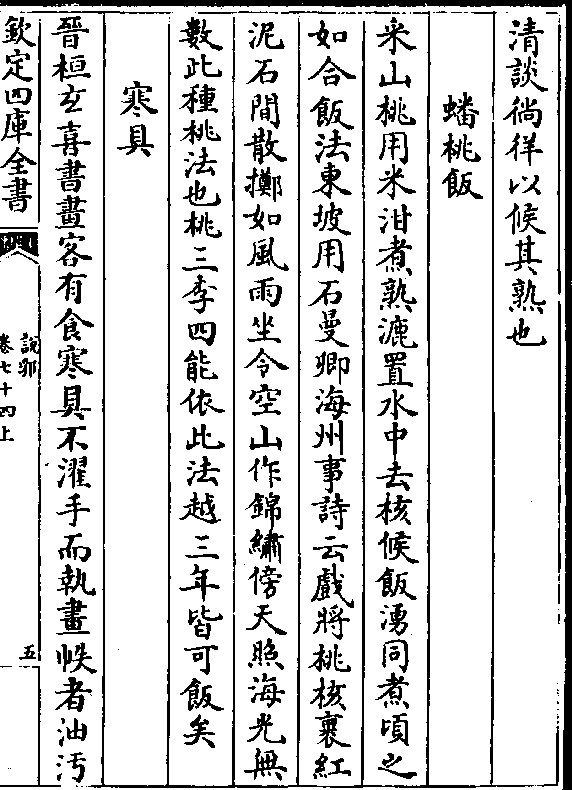 清談徜徉以候其熟也
蟠桃飯
采山桃用米泔煮熟漉置水中去核候飯湧同煮頃之
如合飯法東坡用石曼卿海州事詩云戲將桃核裹紅
泥石間散擲如風雨坐令空山作錦繡傍天照海光無
數此種桃法也桃三李四能依此法越三年皆可飯矣
寒具
晉桓玄喜書畫客有食寒具不濯手而執畫帙者油汚
欽定四庫全書
說郛
卷七十四上
五